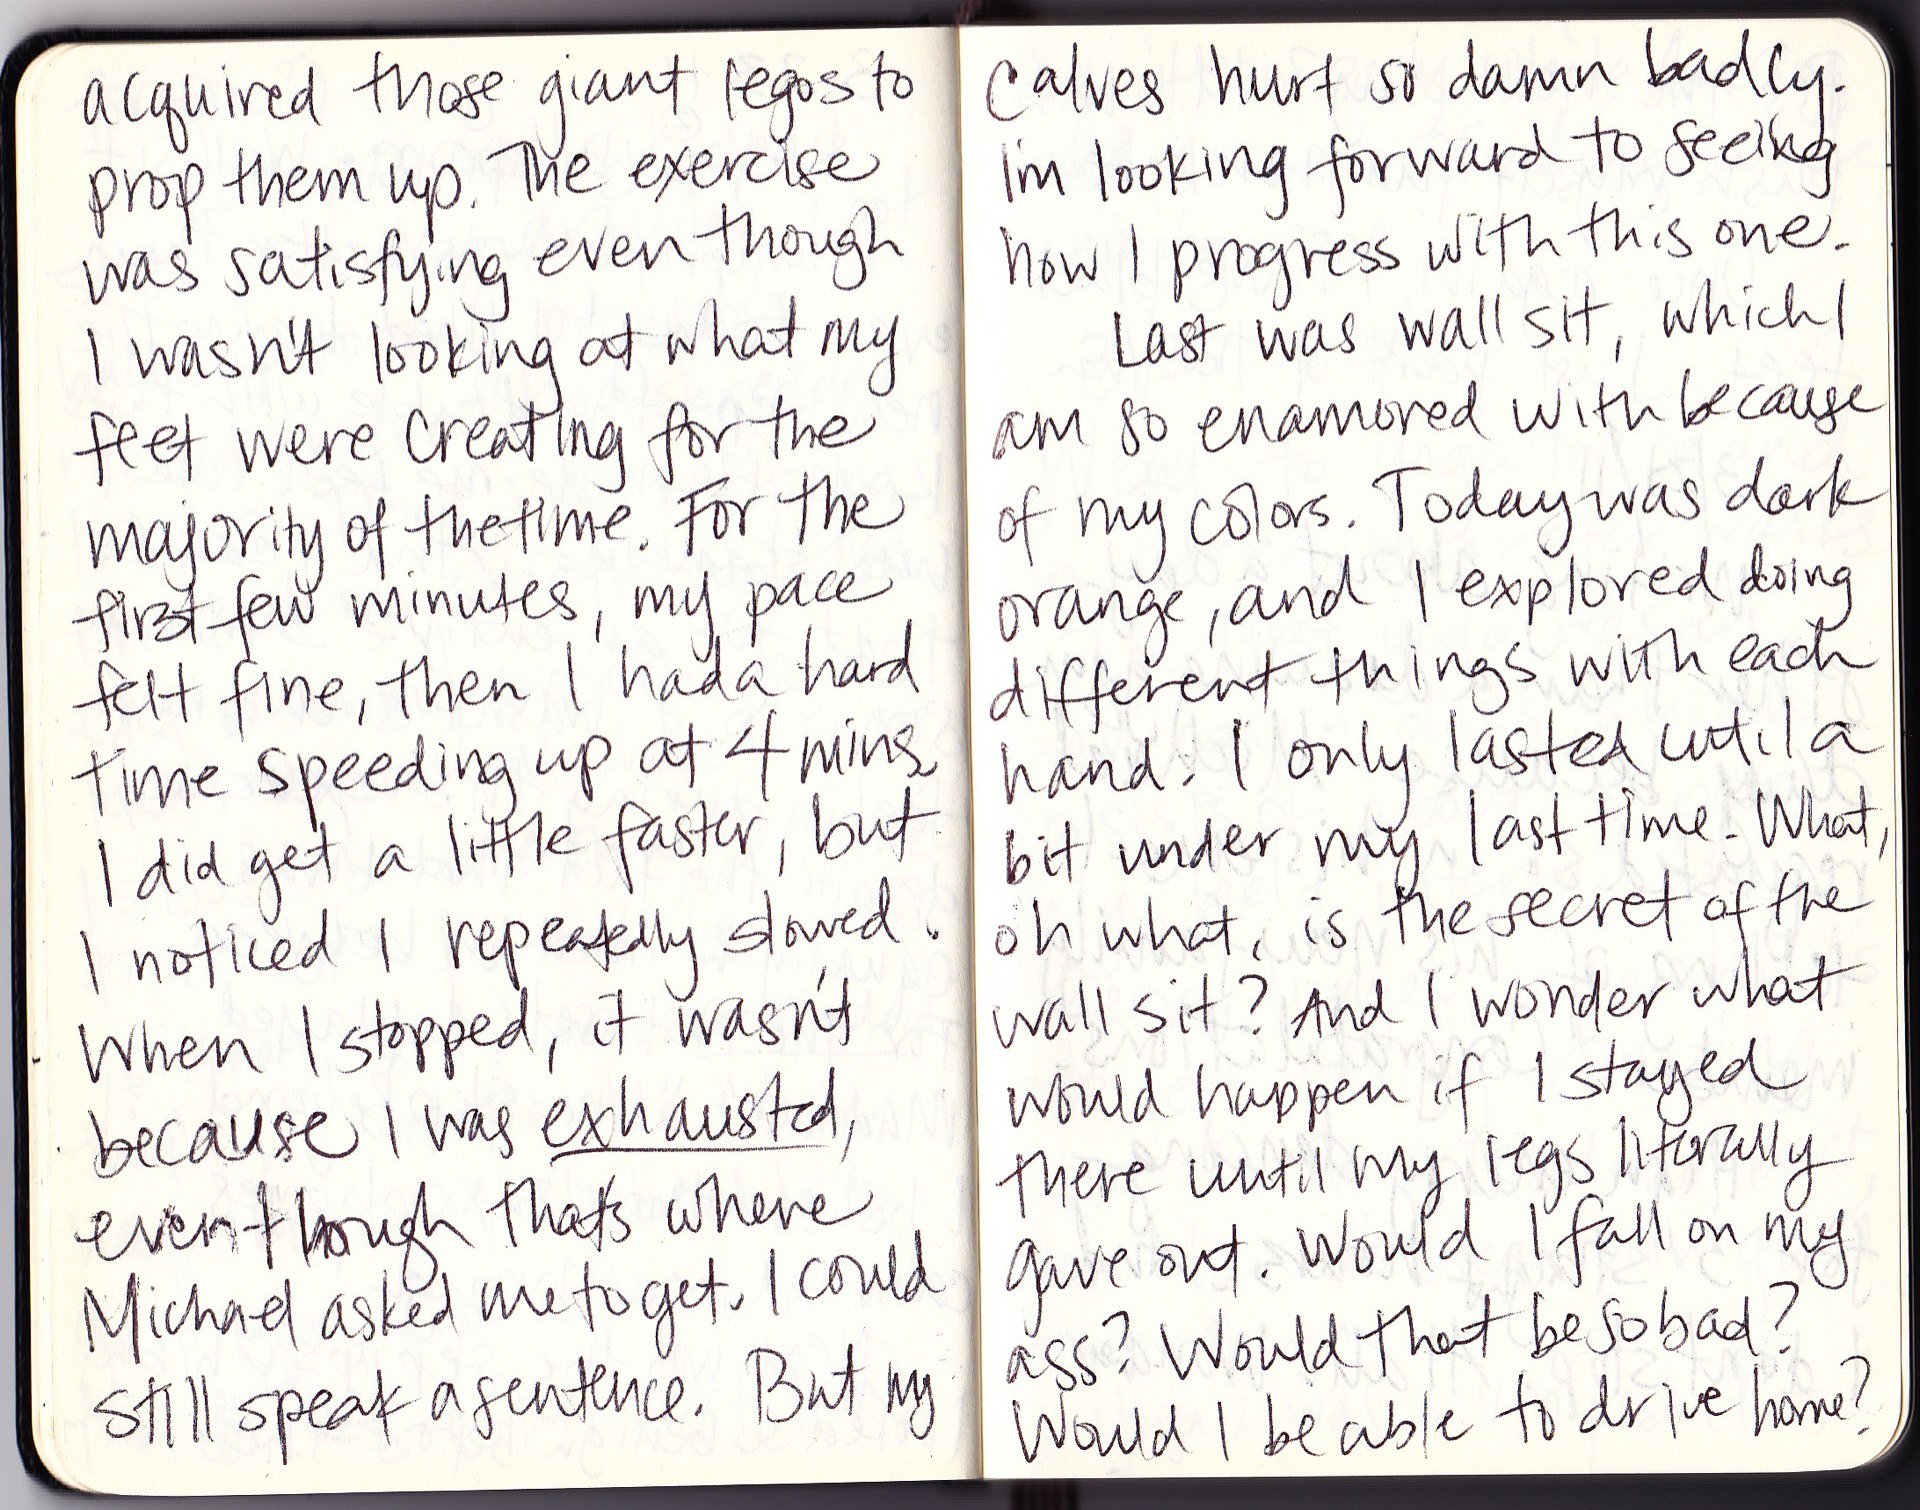 acquired those giant legos to
prop them up. The exercise
was satisfying even though
I wasn't looking at what my
feet were creating for the
majority of the time. For the
first few minutes, my pace
felt fine, then I had a hard
time speeding up at 4 mins.
I did get a little faster, but
I noticed I repeatedly slowed.
When I stopped, it wasn't
because I was exhausted,
even though that's where
Michael asked me to get. I could
still speak a sentence. But my
calves hurt so damn badly.
I'm looking forward to seeing
how I progress with this one.
Last was wall sit, which I
am so enamored with because
of my colors. Today was dark
orange, and I explored doing
different things with each
hand. I only lasted until a
bit under my last time. What,
oh what, is the secret of the
wall sit? And I wonder what
would happen if I stayed
there until my legs literally
gave out. Would I fall on my
ass? Would that be so bad?
Would I be able to drive home?